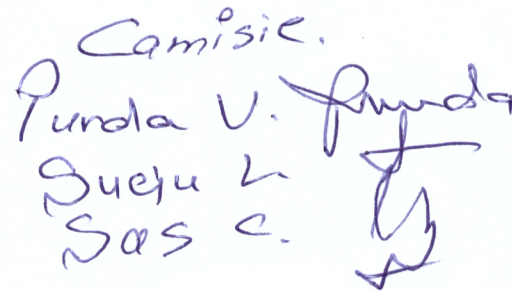 Comisie.
Purda V. Purda
Suciu L.
Sas C.